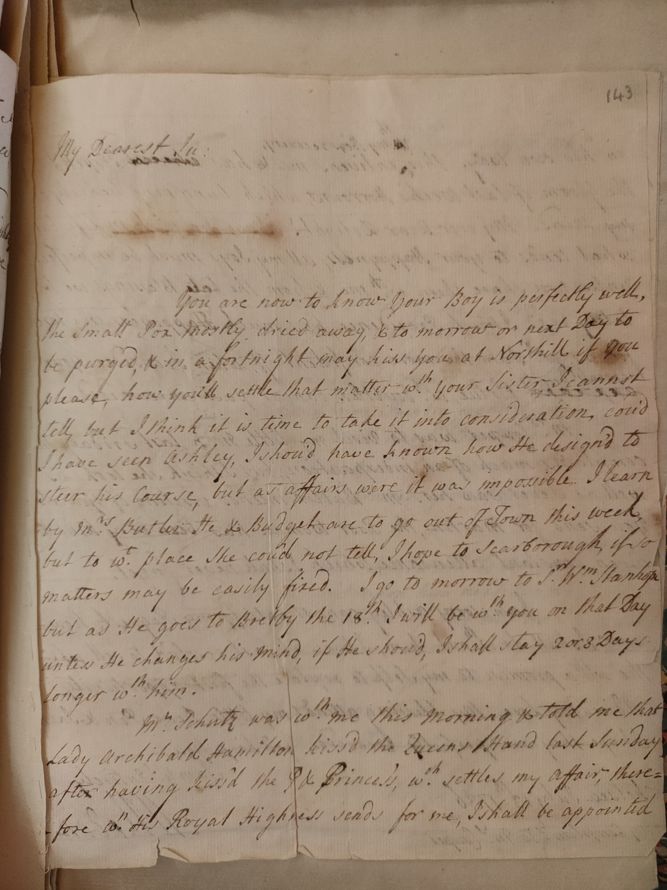 143
My Dearest Ju:
You are now to know Your Boy is perfectly well,
the Small Pox mostly dried away, & to morrow or next Day to
be purged, & in a fortnight may kiss you at Northill if you
please, how you'll settle that matter wth. your Sister I cannot
tell, but I think it is time to take it into consideration, cou'd
I have seen Ashley, I shou'd have known how He design'd to
steer his Course, but as affairs were it was impossible. I learn
by Mrs. Butler He & Budget are to go out of Town this week,
but to wt. place She cou'd not tell, I hope to Scarborough, if so
matters may be easily fixed. I go to morrow to Sr. Wm. Stanhope
but as He goes to Bretby the 18th. I will be wth. you on that Day
unless He changes his mind, if He should, I shall stay 2 or 3 Days
longer wth. him.
Mr. Schutz was wth. me this morning & told me that
Lady Archibald Hamilton kiss'd the Queens Hand last Sunday
after having kiss'd the P & Princess, wch. settles my affair, there=
=fore wn. His Royal Highness sends for me, I shall be appointed